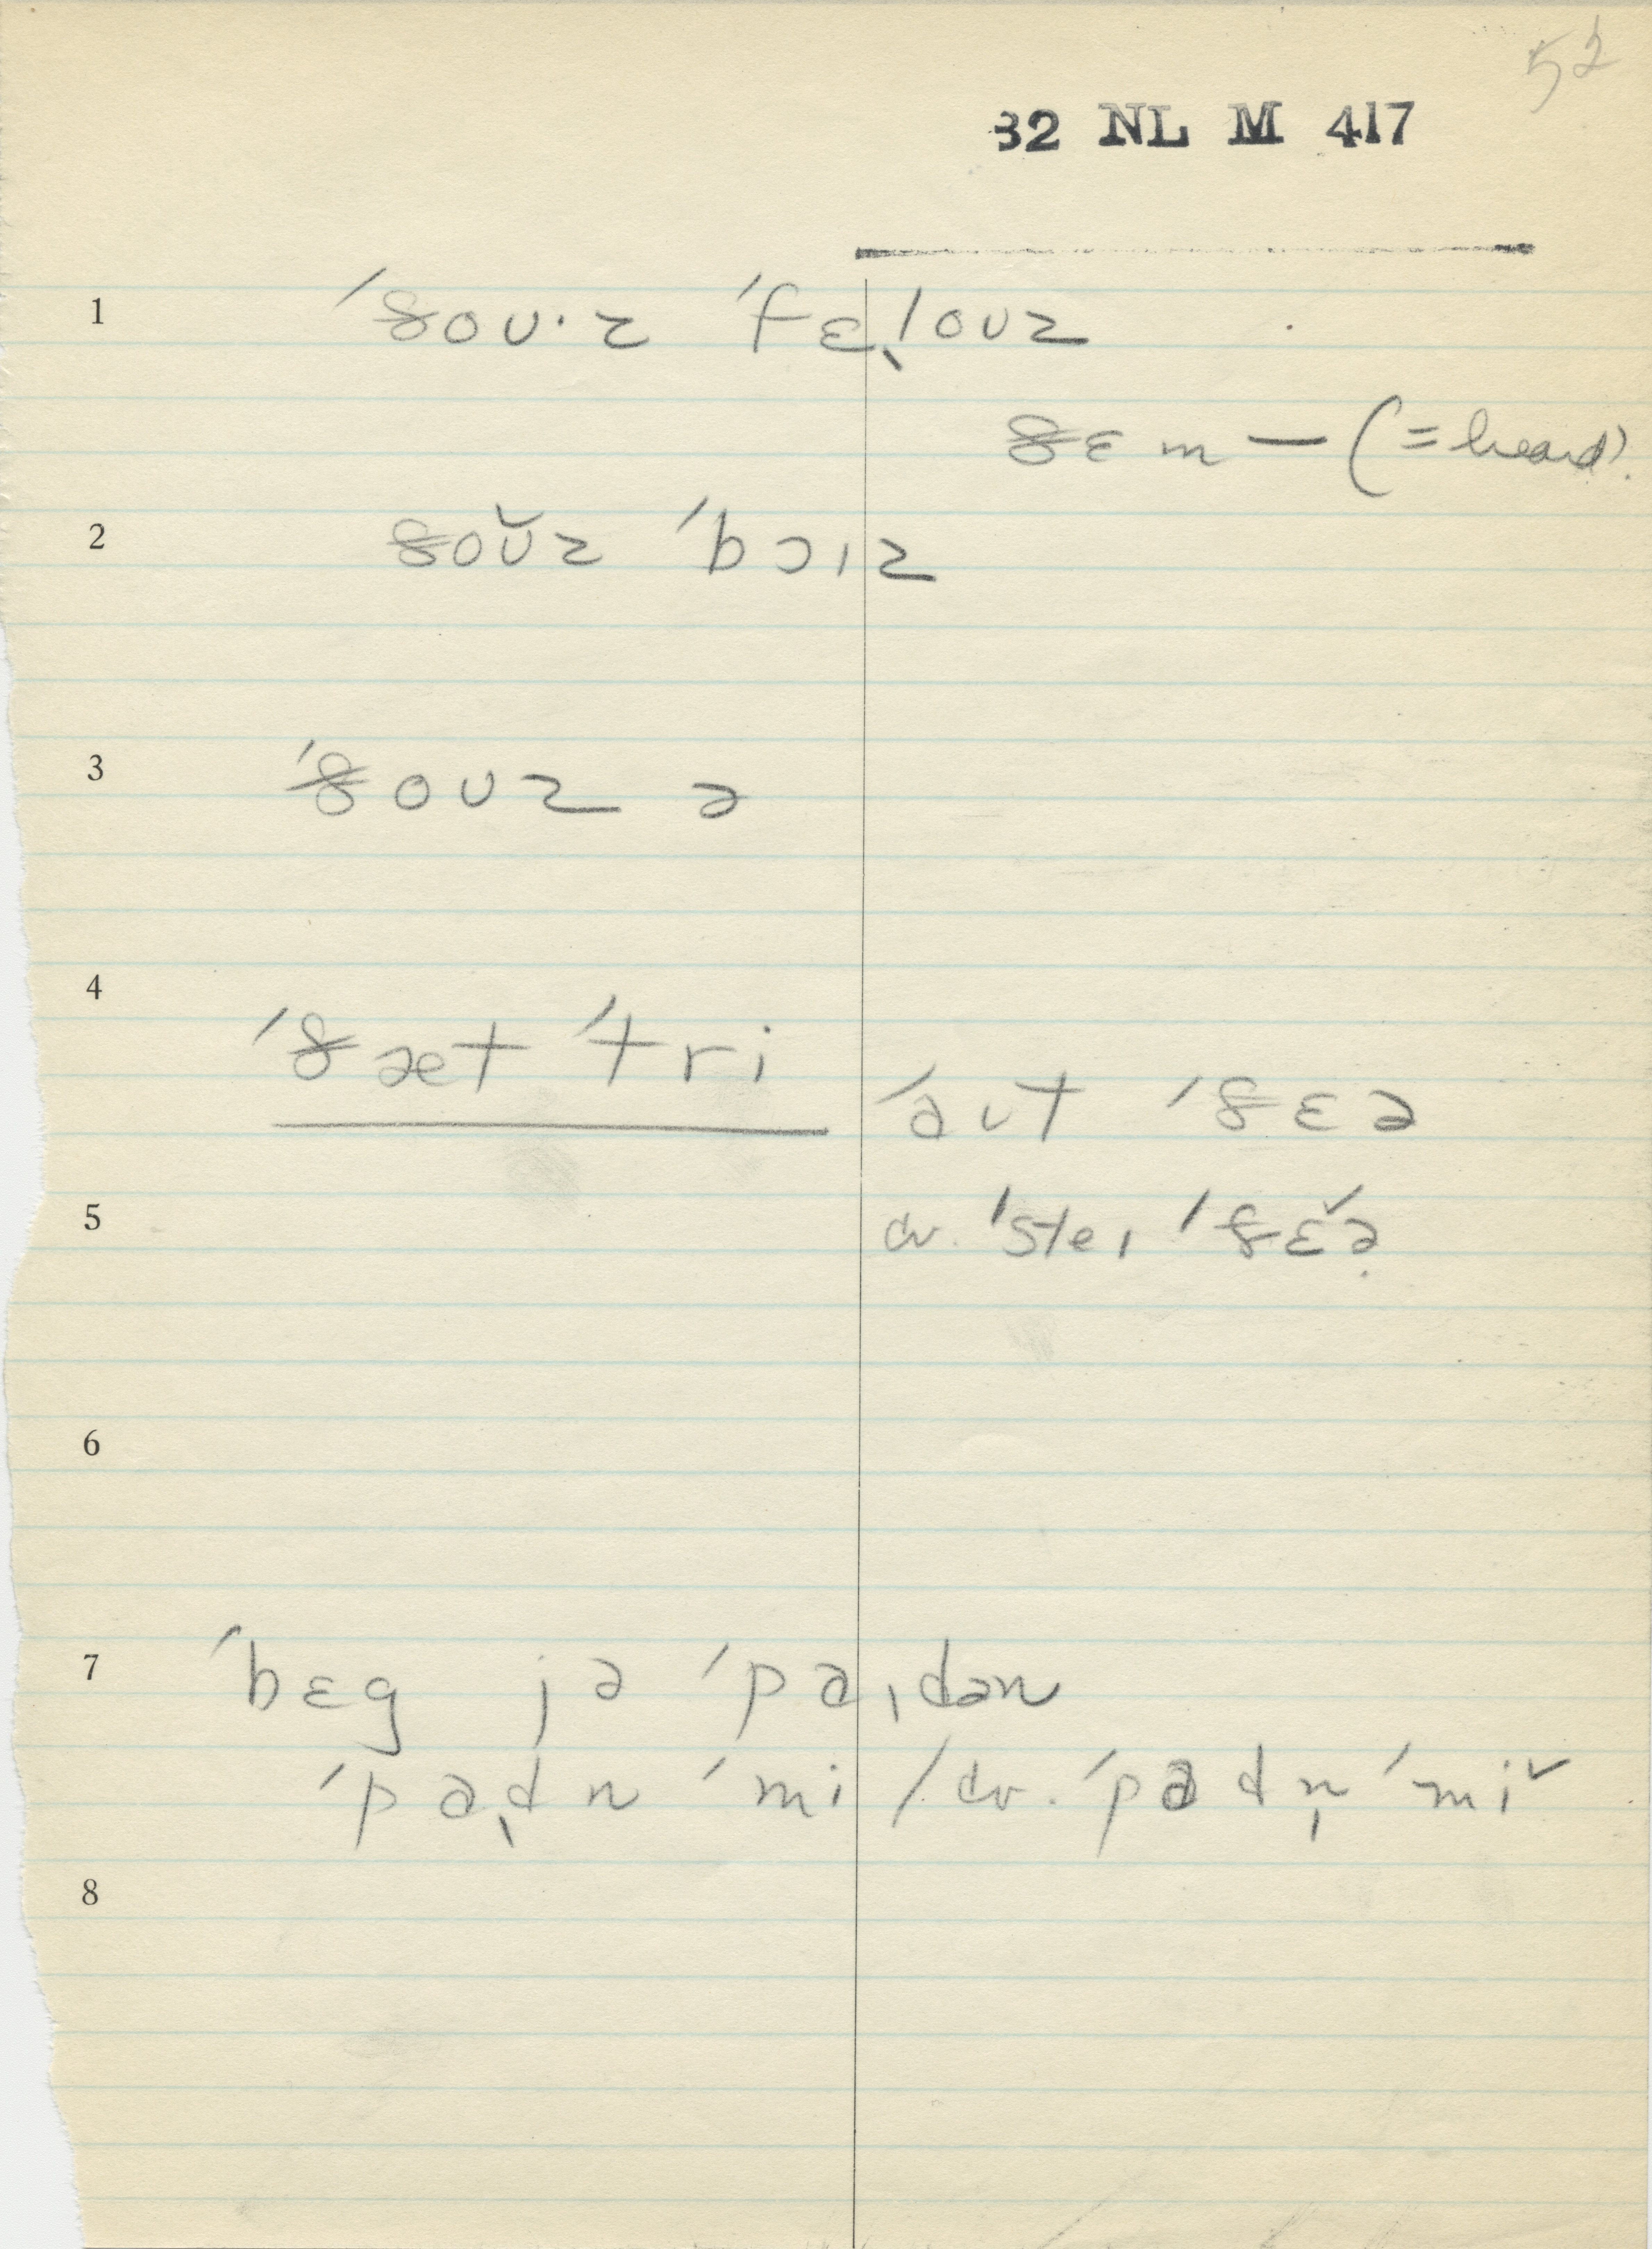 52
32 NL M 417
1 ˈðoʊ·z ˈfɛˌloʊz
ðɛm — (= heard).
2 ðoʊ̌z ˈbɔɪz
3 ˈðoʊz ə
4 ˈðæt ˈtri
ˈaʊt ˈðɛə
5 cv. ˈsteɪ ˈðɛ̌ə
6
7 ˈbɛg jə ˈpaˌdən
ˈpaˌdn ˈmi / cv. ˈpadn̩ ˈmiˇ
8